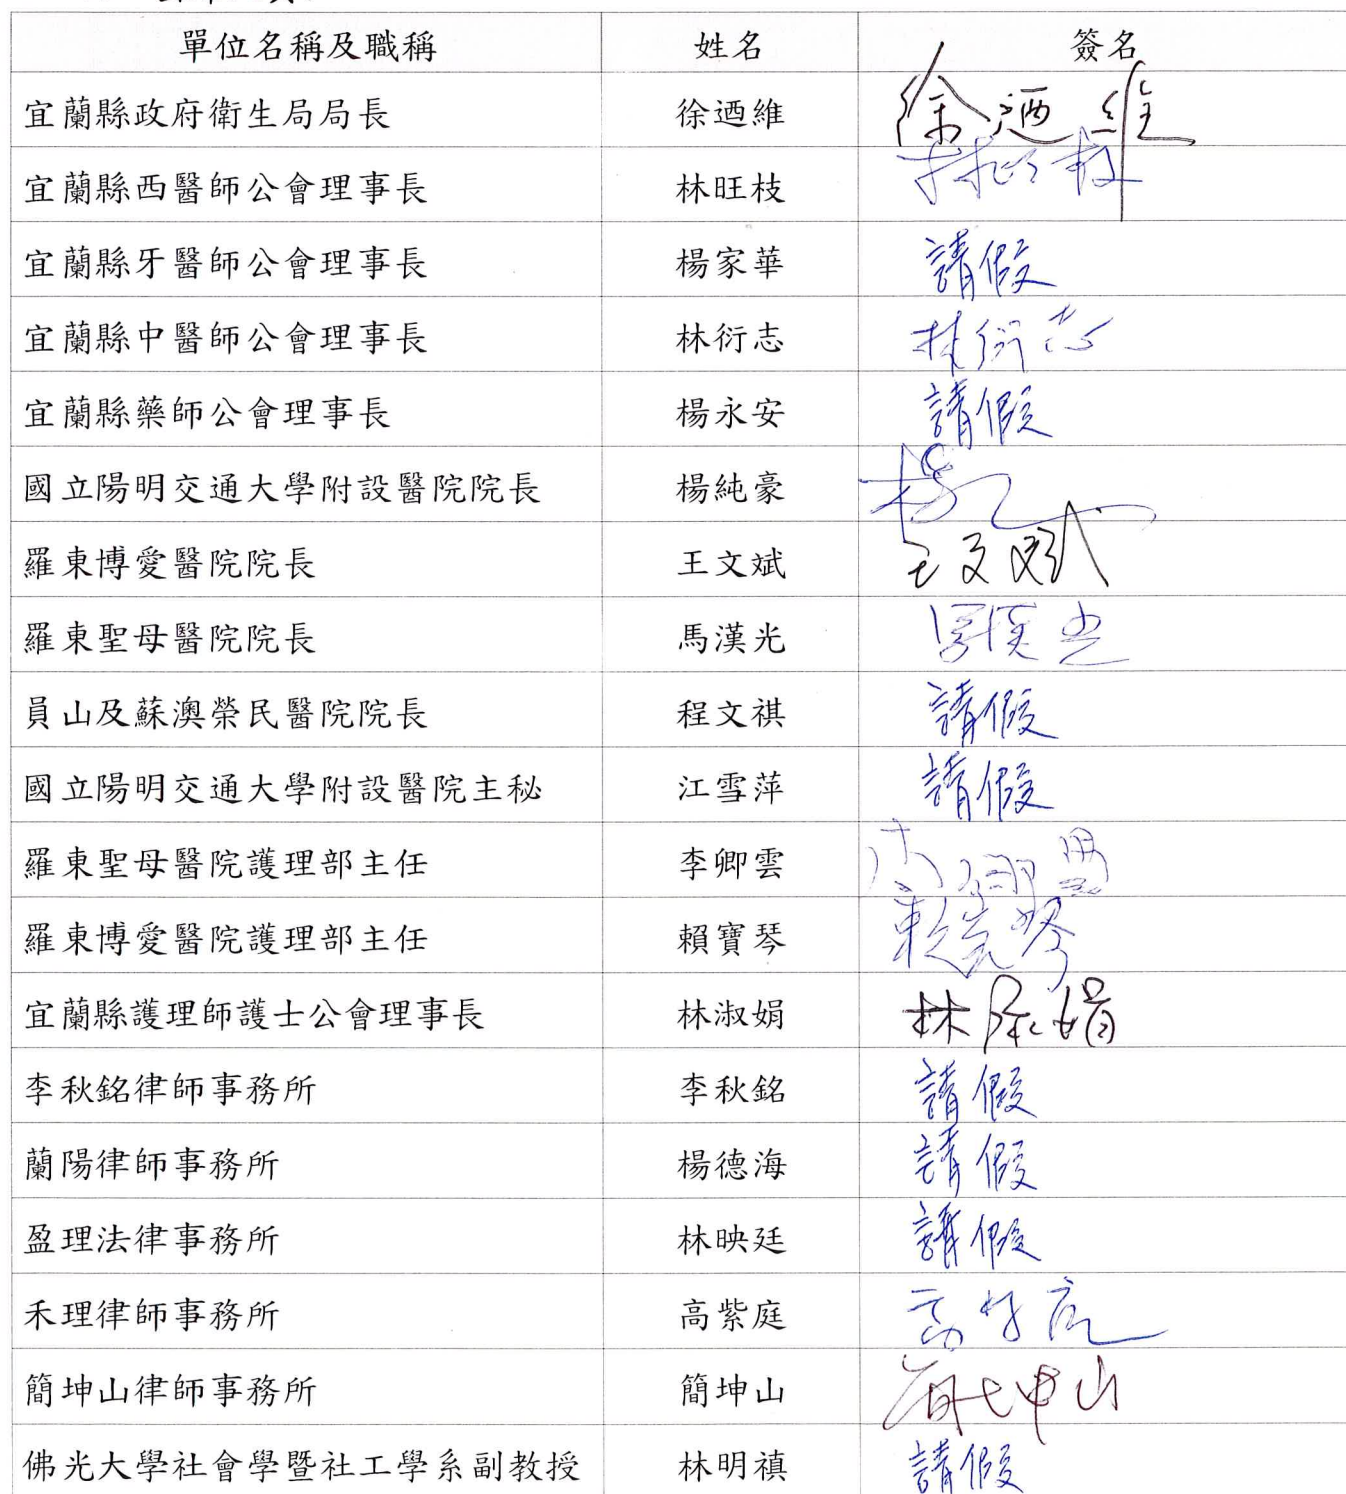 單位名稱及職稱 姓名 簽名
宜蘭縣政府衛生局局長 徐迺維 徐迺維
宜蘭縣西醫師公會理事長 林旺枝 林旺枝
宜蘭縣牙醫師公會理事長 楊家華 請假
宜蘭縣中醫師公會理事長 林衍志 林衍志
宜蘭縣藥師公會理事長 楊永安 請假
國立陽明交通大學附設醫院院長 楊純豪 楊
羅東博愛醫院院長 王文斌 王文斌
羅東聖母醫院院長 馬漢光 馬漢光
員山及蘇澳榮民醫院院長 程文祺 請假
國立陽明交通大學附設醫院主秘 江雪萍 請假
羅東聖母醫院護理部主任 李卿雲 李卿雲
羅東博愛醫院護理部主任 賴寶琴 賴寶琴
宜蘭縣護理師護士公會理事長 林淑娟 林淑娟
李秋銘律師事務所 李秋銘 請假
蘭陽律師事務所 楊德海 請假
盈理法律事務所 林映廷 請假
禾理律師事務所 高紫庭 高紫庭
簡坤山律師事務所 簡坤山 簡坤山
佛光大學社會學暨社工學系副教授 林明禛 請假